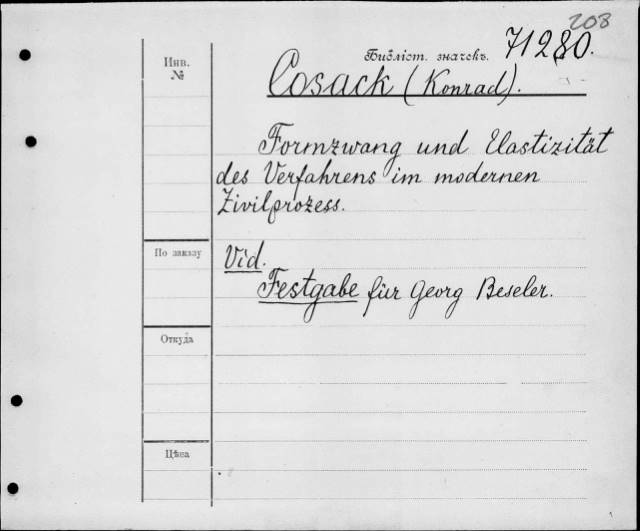 208
Библіот. значекъ. 71280.
Инв.
№
Cosack (Konrad).
Formzwang und Elastizität
des Verfahrens im modernen
Zivilprozess.
По заказу
Vid.
Festgabe für Georg Beseler.
Откуда
Цѣна